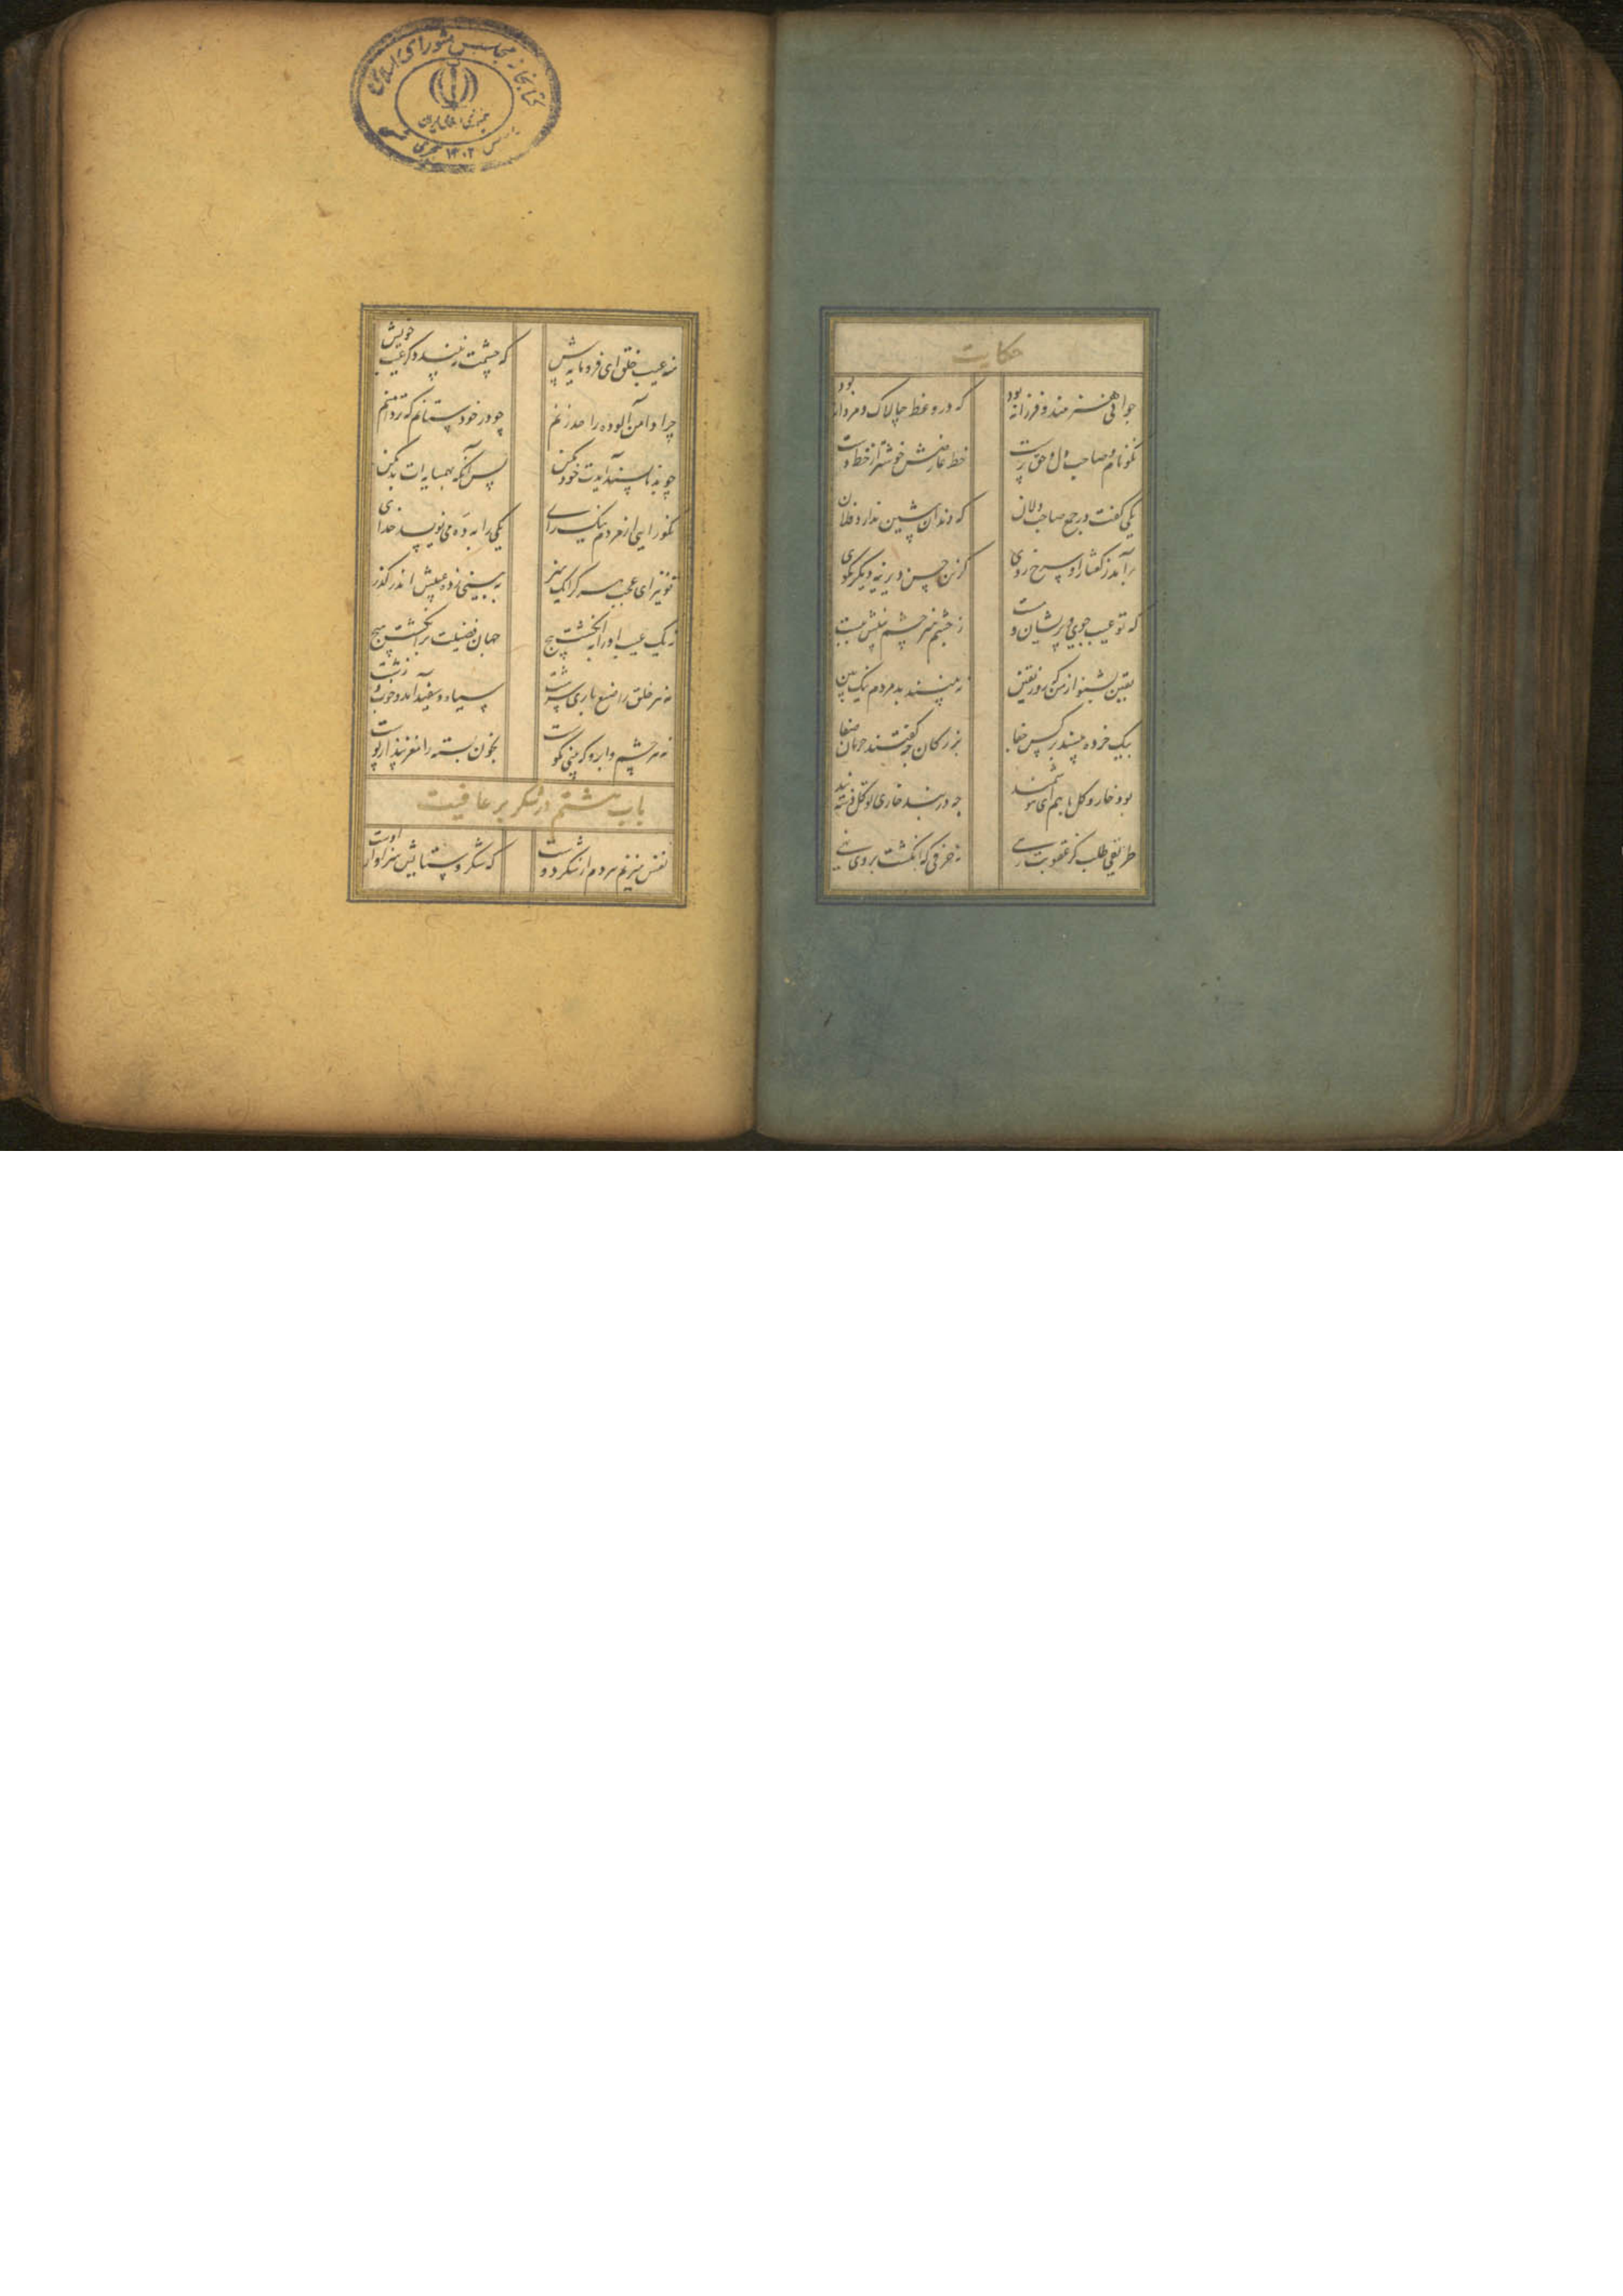 حکایت
جوانی هنرمند و فرزانه بود که در وعظ چالاک و مردانه بود
نکونام و صاحب دل و حق پرست خط عارضش خوشتر از خط دست
یکی گفت در جمع صاحب دلان که دندان پیشین ندارد فلان
برآمد ز گفتار او سرخ روی کزین جنس دیرینه دیگر مگوی
که تو عیب جویی و پریشان ز چشم هنر چشم عیبش ببست
یقین بشنو از من که روز یقین نه بینند بد مردم نیک بین
بیک خرده مپسند بر کس جفا بزرگان چه گفتند خذ ما صفا
بود خار و گل با هم ای هوشمند چه در بند خاری تو گل دسته بند
طریقی طلب کز عقوبت رهی نه حرفی که انگشت بروی نهی
منه عیب خلق ای فرومایه پیش که چشمت ز عیب خویش
چرا دامن آلوده را حد زنم چو در خود شناسم که تردامنم
چو بد ناپسند آیدت خود مکن پس آنکه بهمسایه ات بد مکن
نکو رایی از مردم نیک رای یکی را به ده می نویسد خدای
تو نیز ای عجب هر کرا یک هنر به بینی ز ده عیبش اندر گذر
نه یک عیب او را به انگشت پیچ جهان فضیلت برانگشت هیچ
نه هر خلق را صنع باری سرشت سیاه و سفید آمد و خوب و زشت
نه هر چشم و ابرو که بینی نکوست بخور پسته را مغز بنداز پوست
باب هشتم در شکر بر عافیت
نفس می نزنم زد از شکر دوست که شکر و ستایش سزاوار اوست
کتابخانه مجلس شورای اسلامی
جمهوری اسلامی ایران
۱۴۰۲ هجری